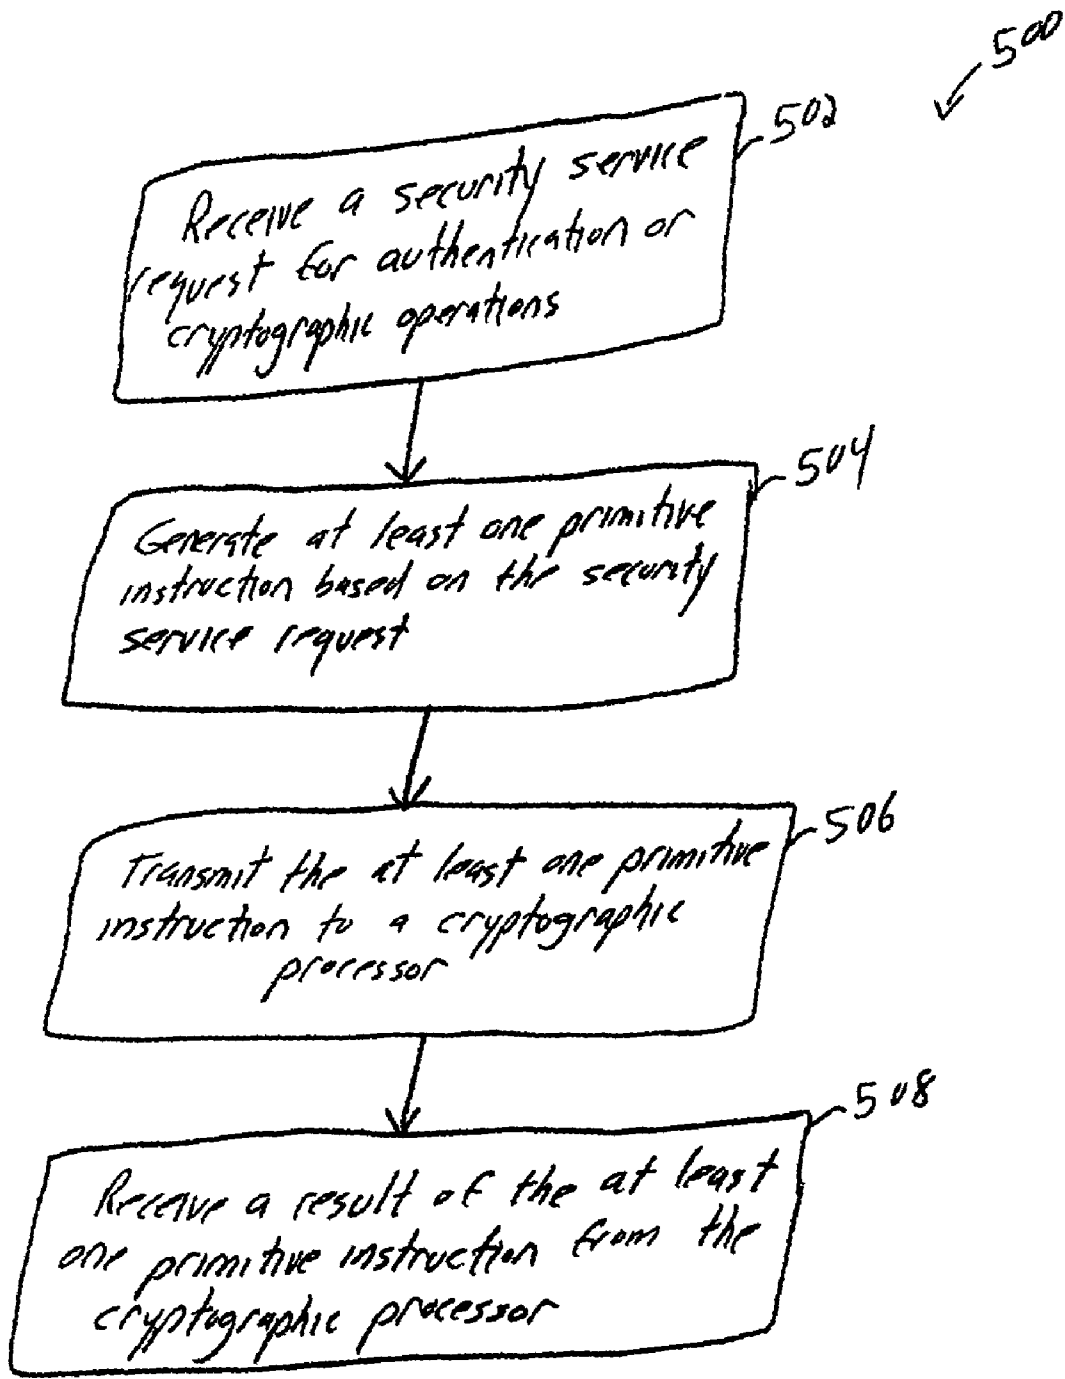 500
502
Receive a security service
request for authentication or
cryptographic operations
504
Generate at least one primitive
instruction based on the security
service request
506
Transmit the at least one primitive
instruction to a cryptographic
processor
508
Receive a result of the at least
one primitive instruction from the
cryptographic processor